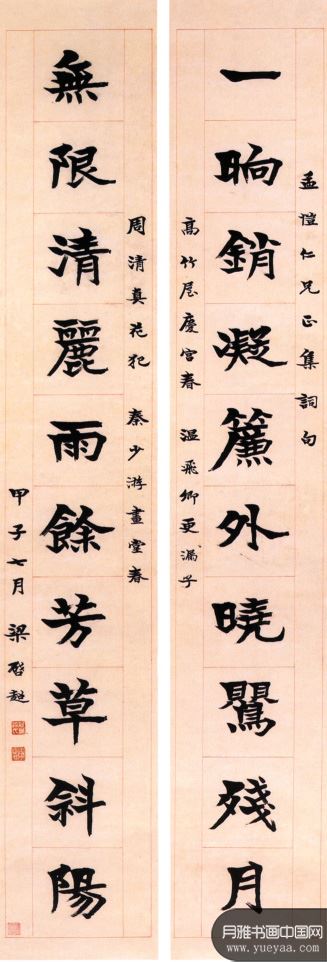 孟愷仁兄正集詞句
一晌銷凝簾外曉鸎殘月
高竹屋慶宮春 溫飛卿更漏子
周清真花犯 秦少游畫堂春
無限清麗雨餘芳草斜陽
甲子七月 梁啓超
月雅书画中国网
www.yueyaa.com